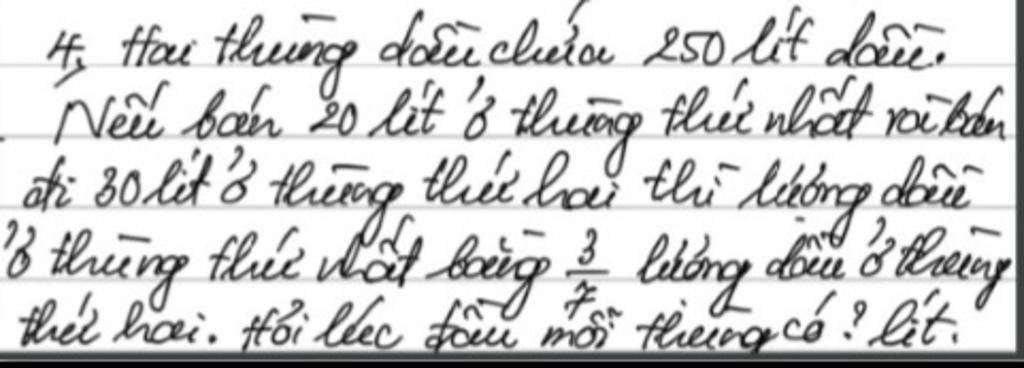 4, Hai thùng dầu chứa 250 lít dầu.
Nếu bán 20 lít ở thùng thứ nhất rồi bán
đi 30 lít ở thùng thứ hai thì lượng dầu
ở thùng thứ nhất bằng 3/7 lượng dầu ở thùng
thứ hai. Hỏi lúc đầu mỗi thùng có ? lít.